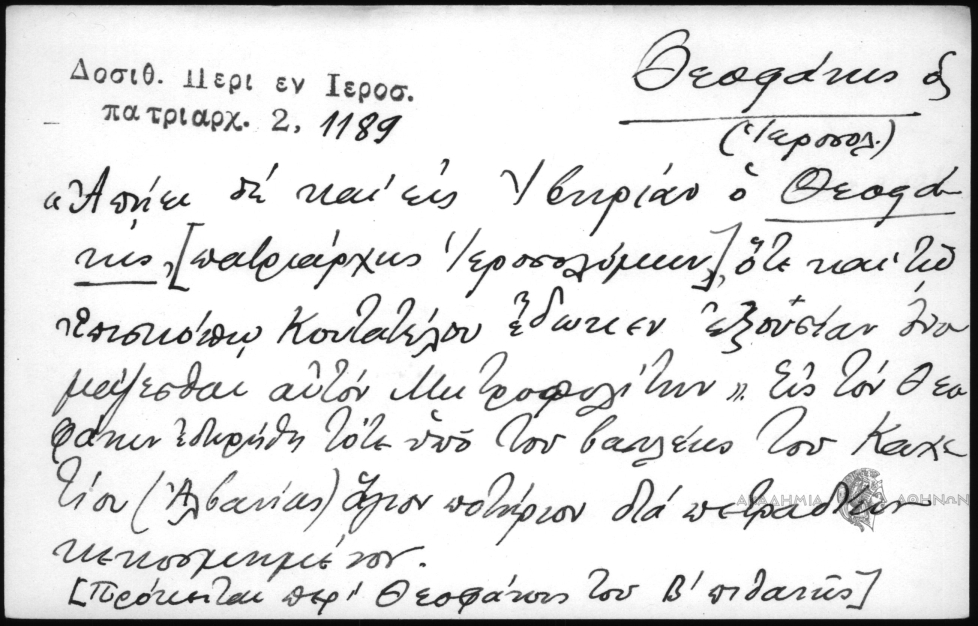 Δοσιθ. Περι εν Ιεροσ.
πατριαρχ. 2, 1189
Θεοφάνης ὁ
(Ἱεροσολ.)
«Ἀπῄει δέ καί εἰς Ἰβηρίαν ὁ Θεοφά-
νης, [πατριάρχης Ἱεροσολύμων], ὅτε καί τῷ
ἐπισκόπῳ Κουτατέλου ἔδωκεν ἐξουσίαν ὀνο
μάζεσθαι αὐτόν Μητροπολίτην». Εἰς τόν Θεο
φάνην ἐδωρήθη τότε ὑπό του βασιλέως του Καχε
τίου (Ἀλβανίας) ἅγιον ποτήριον διά πετραδίων
κεκοσμημένον.
[Πρόκειται περί Θεοφάνους του Β' πιθανῶς]
ΑΚΑΔΗΜΙΑ ΑΘΗΝΩΝ